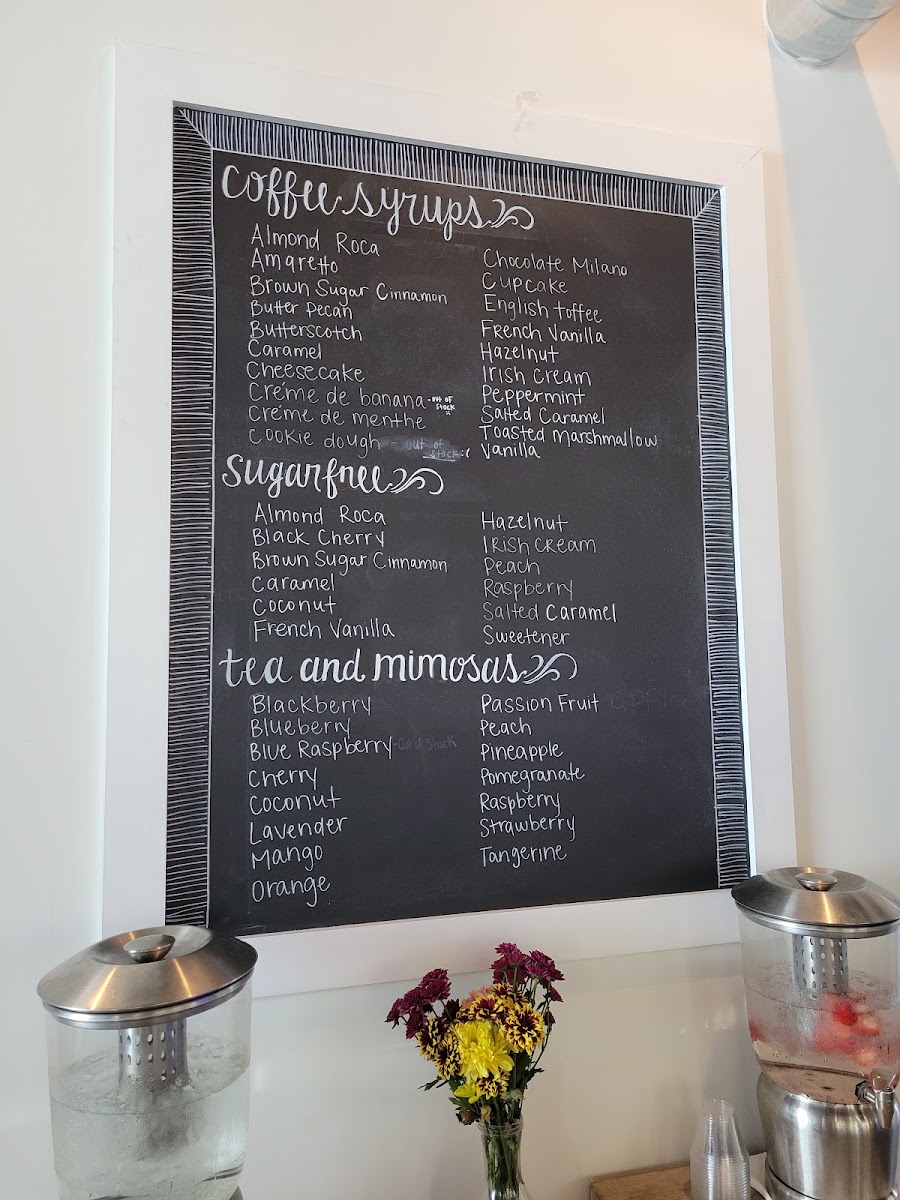 coffee syrups
Almond Roca
Amaretto
Brown Sugar Cinnamon
Butter Pecan
Butterscotch
Caramel
Cheesecake
Créme de banana - out of stock
Créme de menthe
Cookie dough - out of stock :(
Chocolate Milano
Cupcake
English toffee
French Vanilla
Hazelnut
Irish Cream
Peppermint
Salted Caramel
Toasted Marshmallow
Vanilla
sugarfree
Almond Roca
Black Cherry
Brown Sugar Cinnamon
Caramel
Coconut
French Vanilla
Hazelnut
Irish Cream
Peach
Raspberry
Salted Caramel
Sweetener
tea and mimosas
Blackberry
Blueberry
Blue Raspberry - Out of Stock
Cherry
Coconut
Lavender
Mango
Orange
Passion Fruit
Peach
Pineapple
Pomegranate
Raspberry
Strawberry
Tangerine